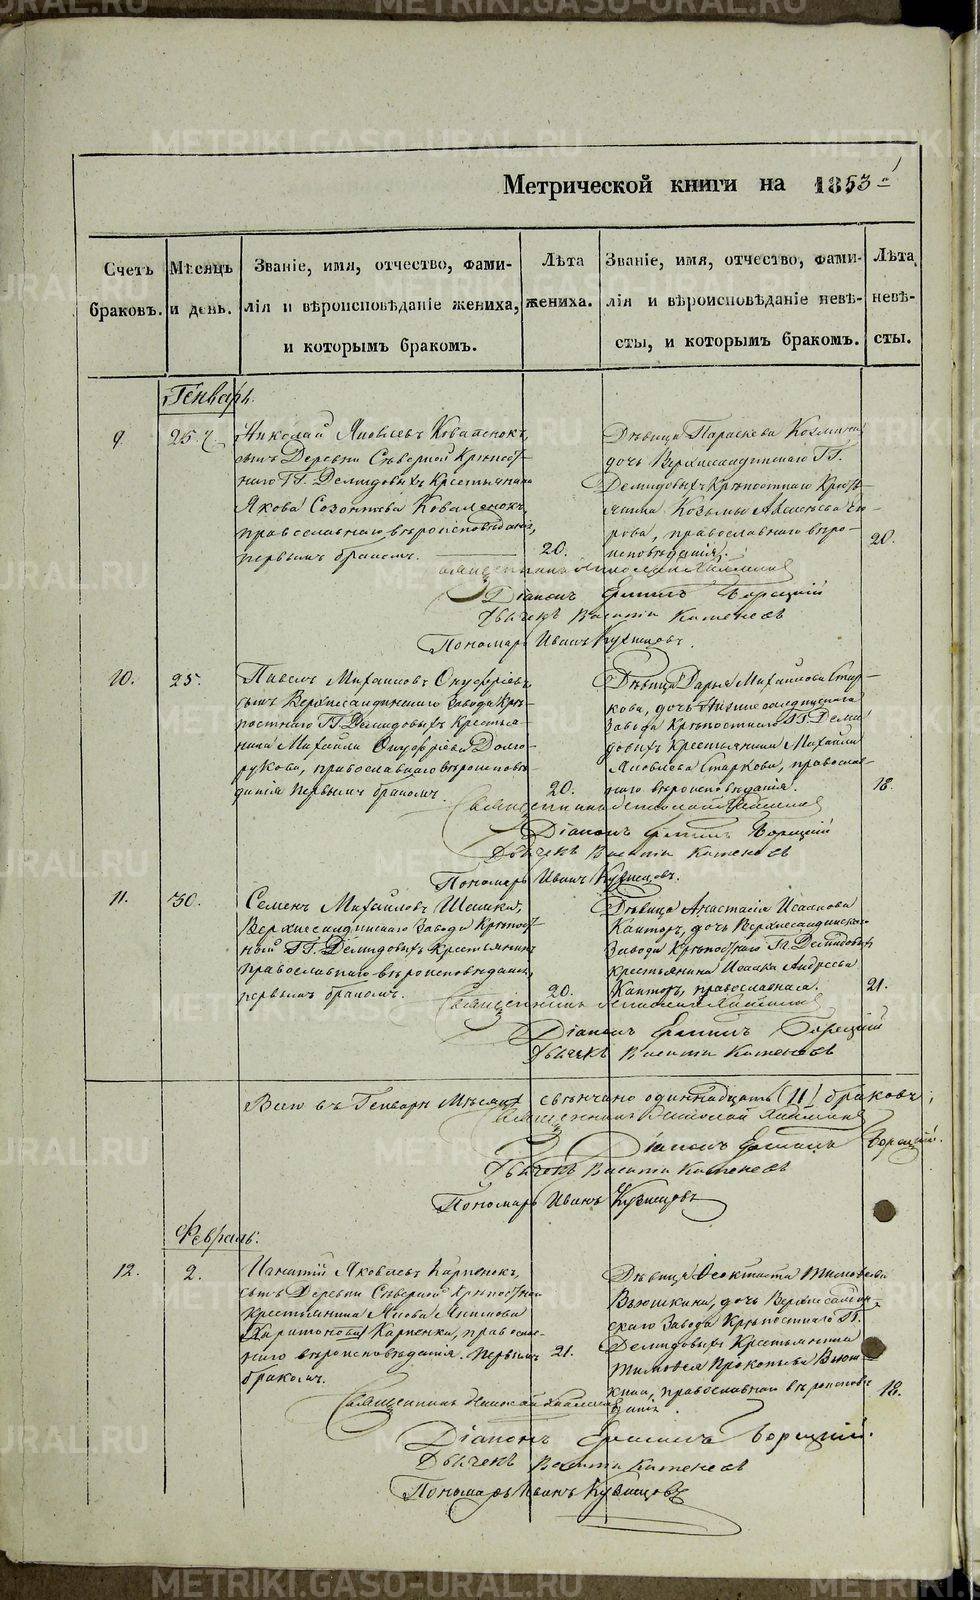 METRIKI.GASO-URAL.RU
Метрической книги на 1853 1
Счетъ браковъ.
Мѣсяцъ и день.
Званіе, имя, отчество, фами-
лія и вѣроисповѣданіе жениха,
и которымъ бракомъ.
Лѣта
жениха.
Званіе, имя, отчество, фами-
лія и вѣроисповѣданіе невѣ-
сты, и которымъ бракомъ.
Лѣта
невѣ-
сты.
Генварь.
9. 25.
Николай Яковлевъ Коваленокъ,
сынъ Деревни Сѣверной Крѣпост-
наго ГГ. Демидовыхъ Крестьянина
Якова Созонтьева Коваленокъ,
православнаго вѣроисповѣданія,
первымъ бракомъ.
20.
Дѣвица Параскева Козмина
дочь Верхнесалдинскаго ГГ.
Демидовыхъ Крѣпостнаго Кресть-
янина Козьмы
рова, православнаго вѣро-
исповѣданія.
20.
Священникъ Николай
Діаконъ Ермилъ Борецкій
Дьячекъ Василій Каменевъ
Пономарь Иванъ Кузнецовъ.
10. 25.
Павелъ Михаиловъ Онуфріевъ
сынъ Верхнесалдинскаго Завода Крѣ-
постнаго ГГ. Демидовыхъ Крестья-
нина Михайла Онуфріева Долго-
рукова, православнаго вѣроисповѣ-
данія первымъ бракомъ.
20.
Дѣвица Дарья Михаилова Стар-
кова, дочь Нижнесалдинскаго
Завода Крѣпостнаго ГГ. Деми-
довыхъ Крестьянина Михайла
Яковлева Старкова, православ-
наго вѣроисповѣданія.
18.
Священникъ Николай
Діаконъ Ермилъ Борецкій
Дьячекъ Василій Каменевъ
Пономарь Иванъ Кузнецовъ.
11. 30.
Семенъ Михайловъ
Верхнесалдинскаго Завода Крѣпост-
ной ГГ. Демидовыхъ Крестьянинъ
православнаго вѣроисповѣданія,
первымъ бракомъ.
20.
Дѣвица Анастасія Исаакова
Канторъ, дочь Верхнесалдинскаго
Завода Крѣпостнаго Гг. Демидовыхъ
крестьянина Исаака Андреева
Канторъ, православная.
21.
Священникъ Николай
Діаконъ Ермилъ Борецкій
Дьячекъ Василій Каменевъ
Всего въ Генварѣ Мѣсяцѣ свѣнчано одиннадцать (11) браковъ;
Священникъ Николай
Діаконъ Ермилъ Борецкій.
Дьячекъ Василій Каменевъ
Пономарь Иванъ Кузнецовъ
Февраль.
12. 2.
Игнатій Яковлевъ Карпенокъ,
сынъ Деревни Сѣверной Крѣпостнаго
Крестьянина Якова Акимова
Харитонова Карпенка, православ-
наго вѣроисповѣданія. Первымъ
бракомъ.
21.
Дѣвица Ѳеоктиста Тимоѳеева
Вьюшкина, дочь Верхнесалдин-
скаго Завода Крѣпостнаго ГГ.
Демидовыхъ Крестьянина
Тимоѳея Прокопьева Вьюш-
кина, православнаго вѣроисповѣ-
данія.
18.
Священникъ Николай
Діаконъ Ермилъ Борецкій.
Дьячекъ Василій Каменевъ
Пономарь Иванъ Кузнецовъ